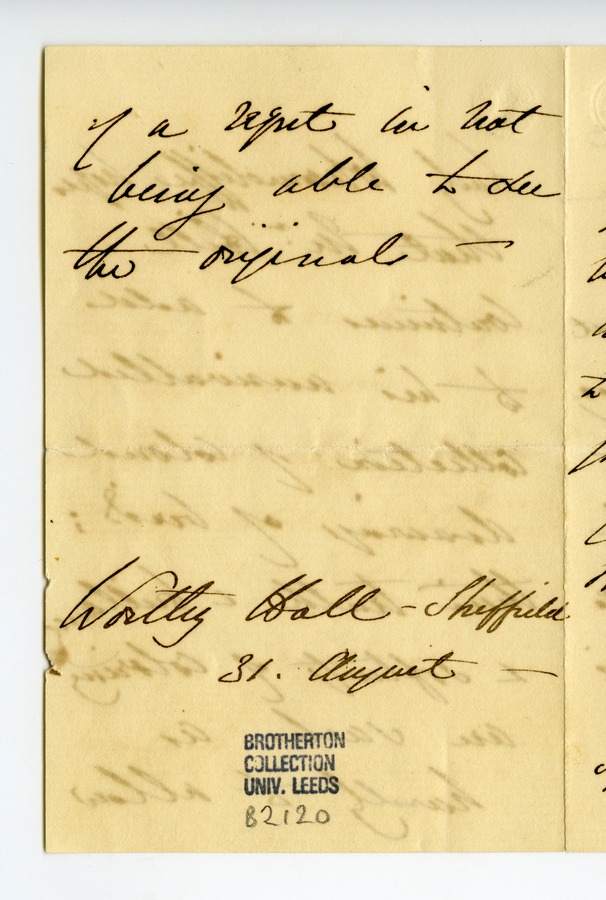 of a regret in not
being able to see
the originals —
Wortley Hall - Sheffield
31. August —
BROTHERTON
COLLECTION
UNIV. LEEDS
B2120